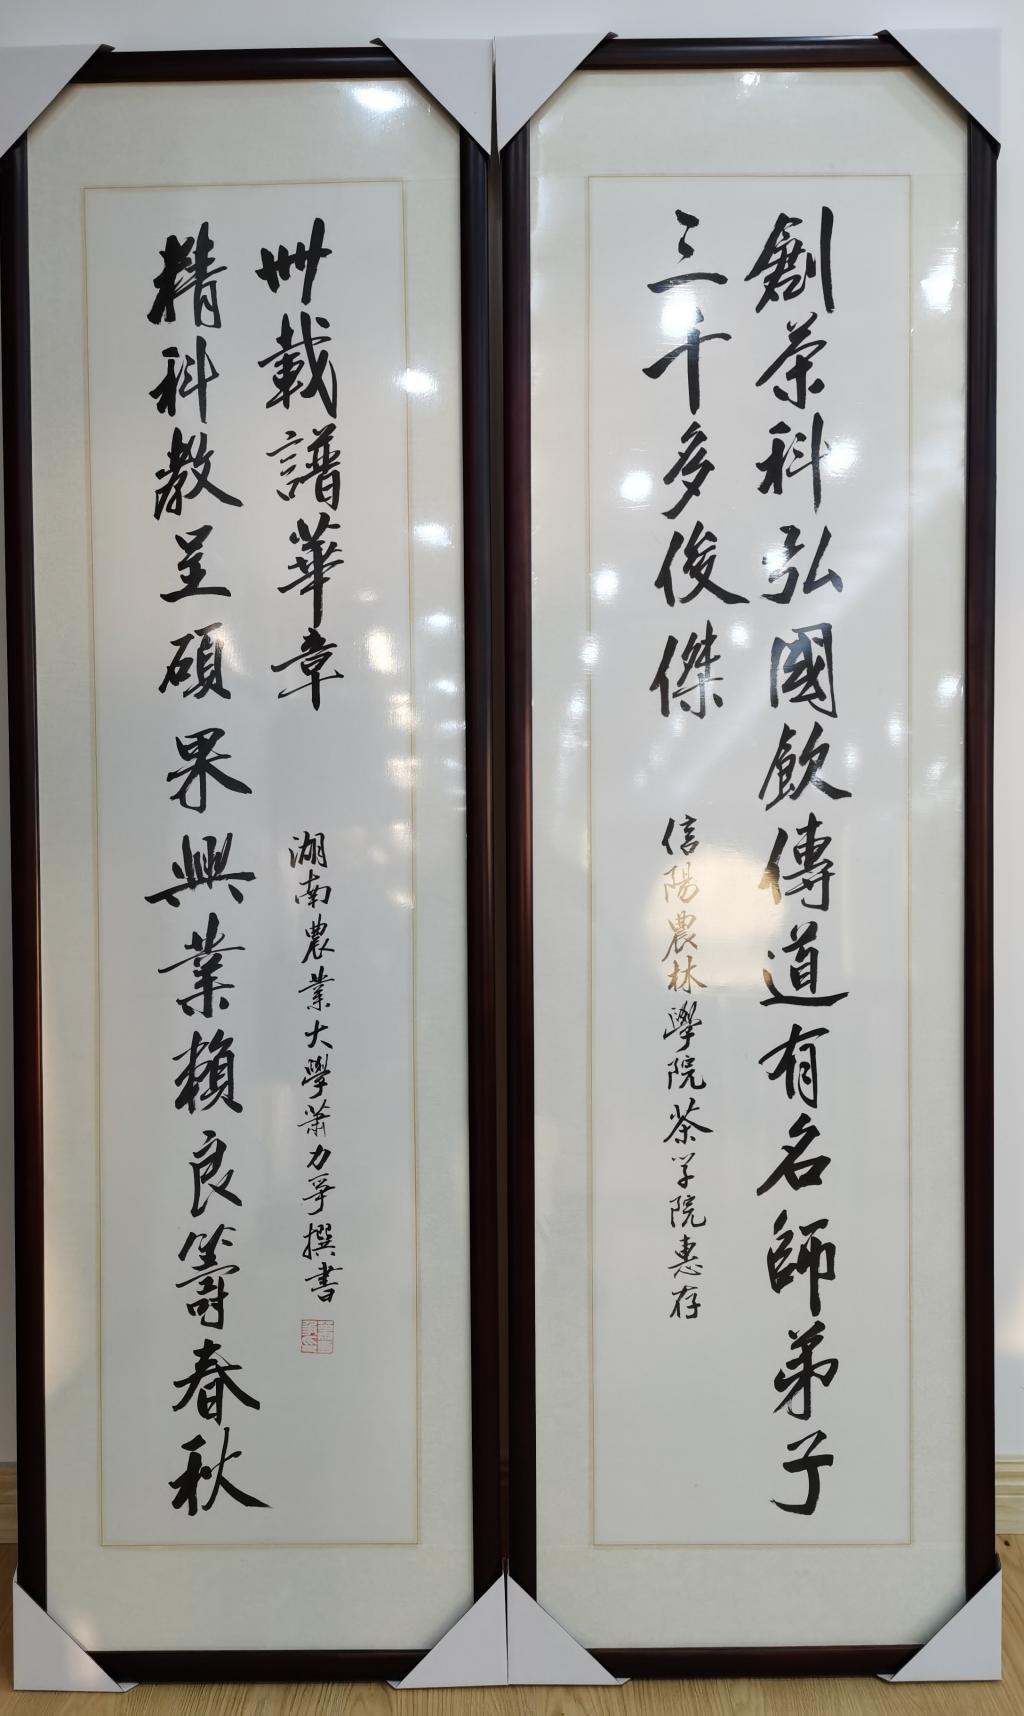 創茶科弘國飲傳道有名師弟子
三千多俊傑
信陽農林學院茶学院惠存
精科教呈碩果興業賴良籌春秋
卌載譜華章
湖南農業大學蕭力爭撰書